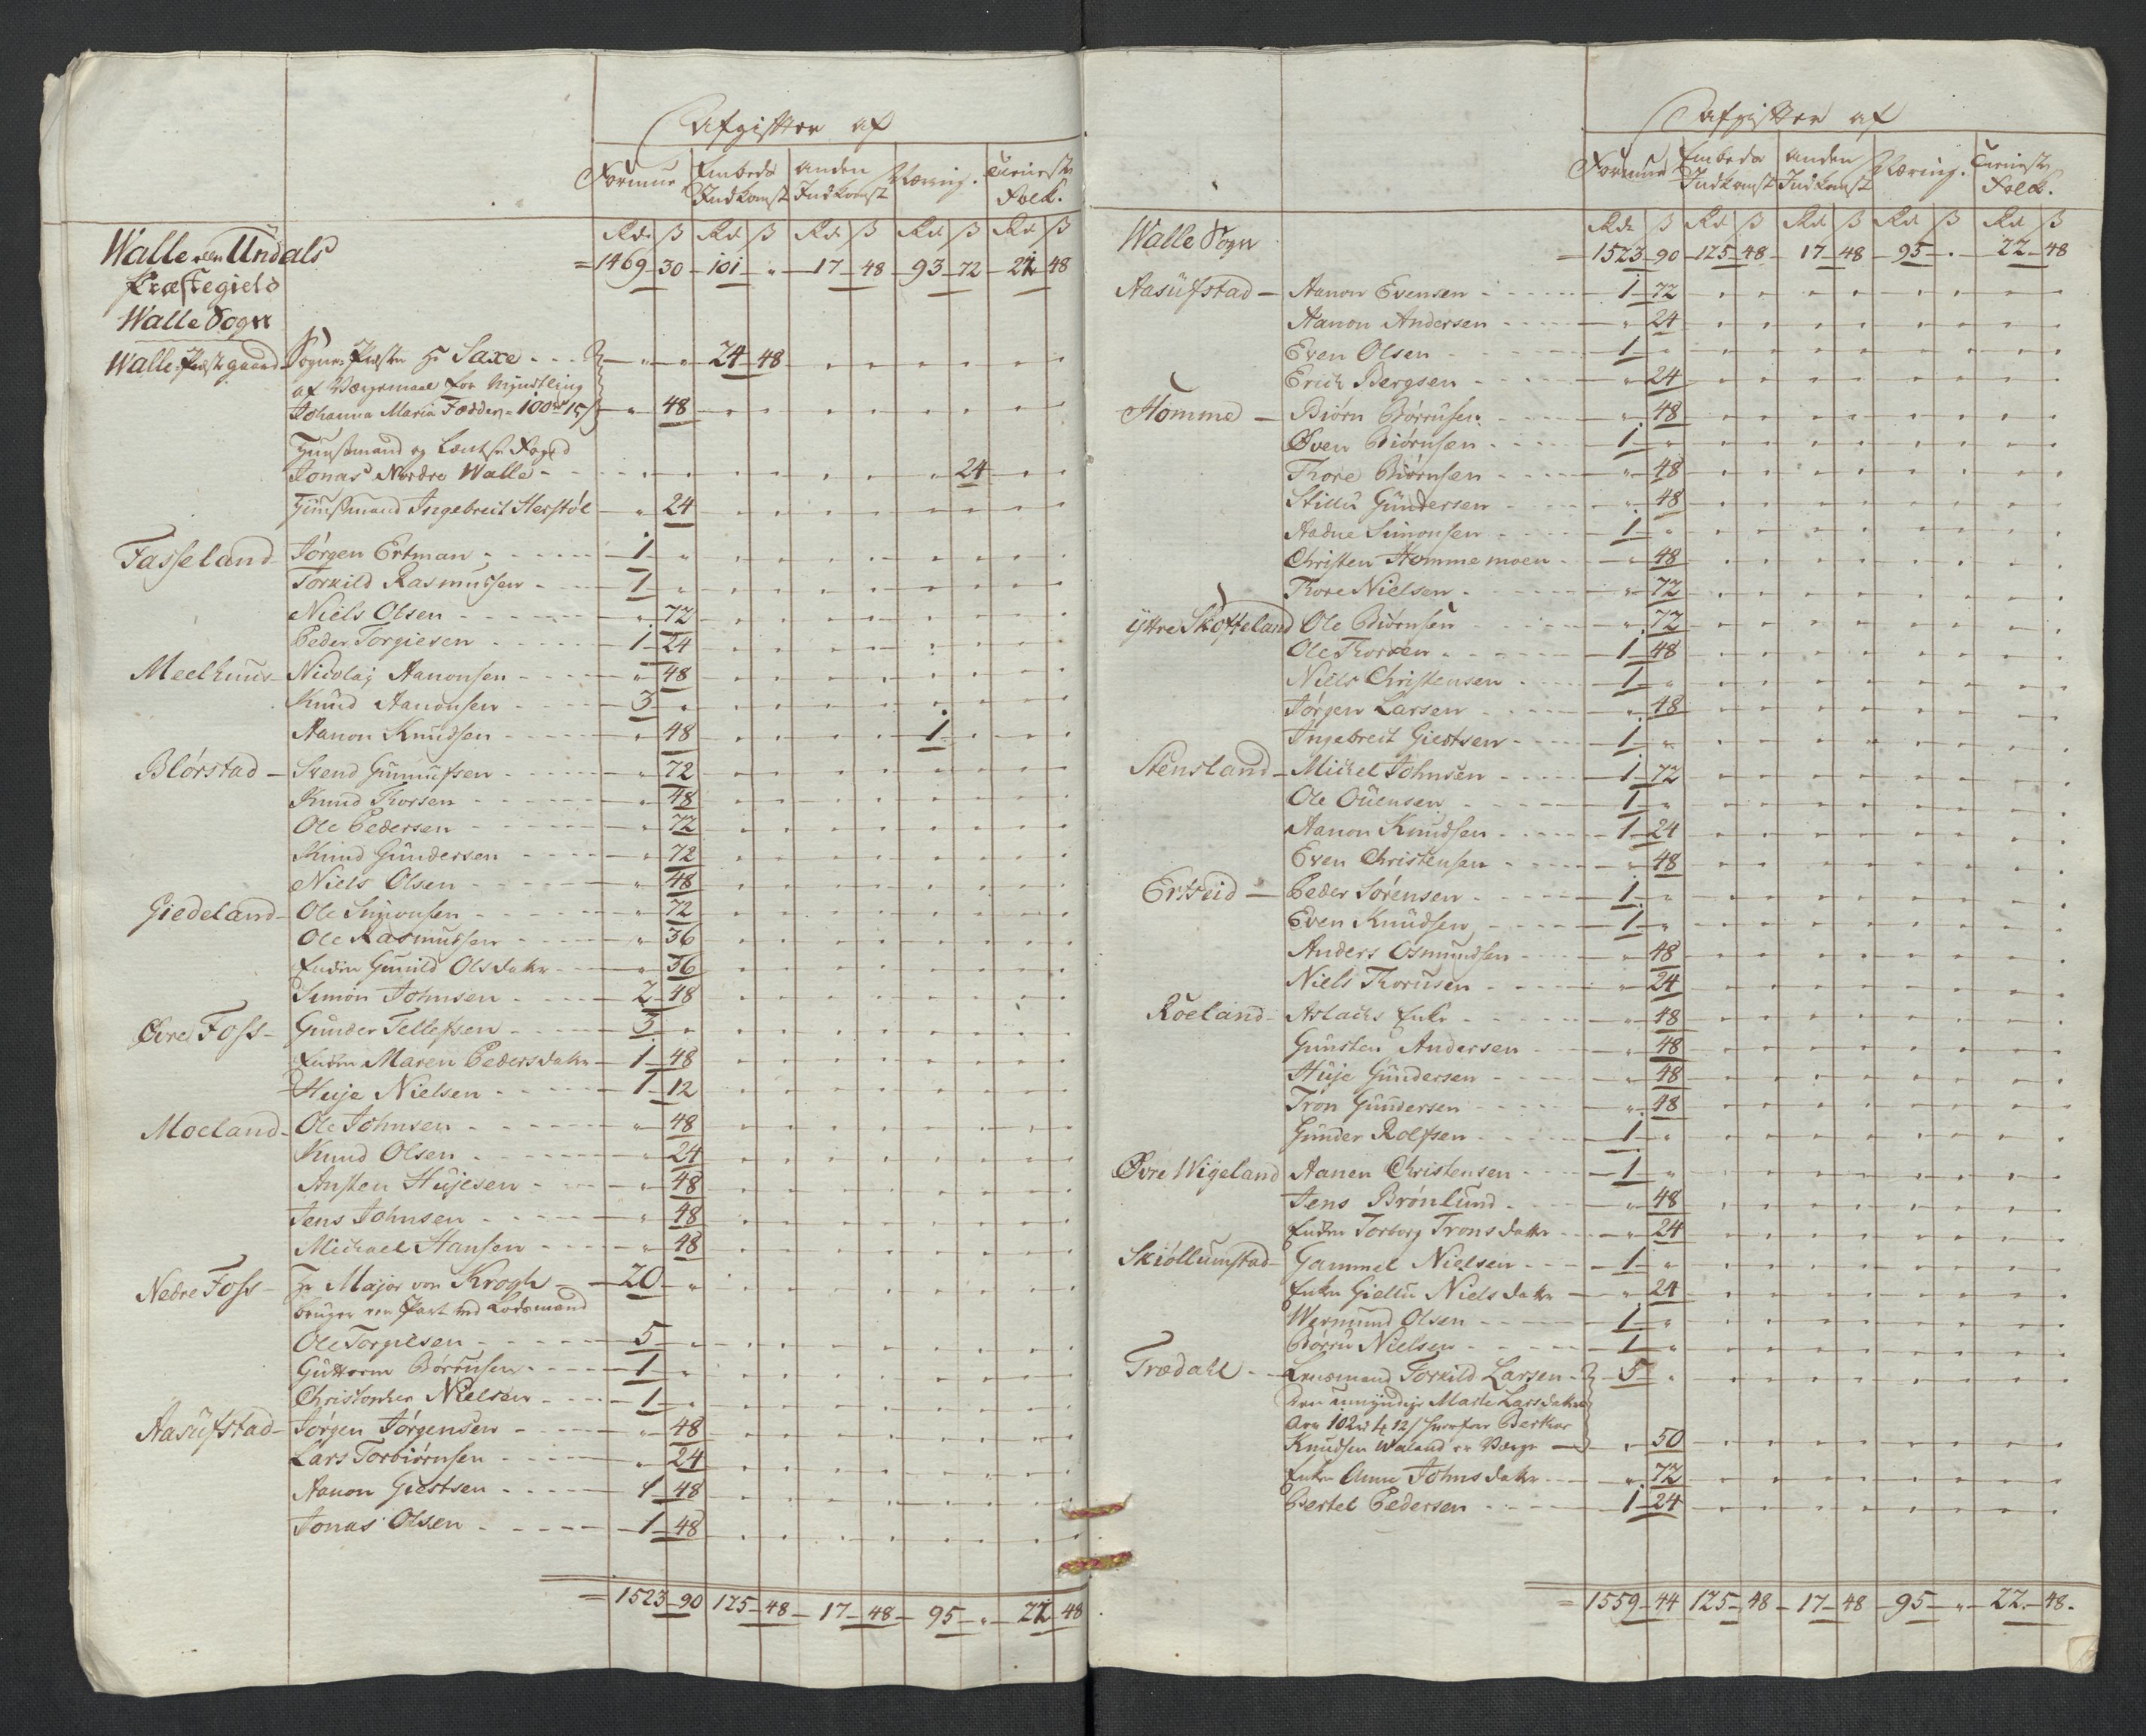 Afgifter af
Formue Embeds Indkomst anden Indkomst Næring. Tieneste Folk.
Rdr ß Rd ß Rd ß Rd ß Rd ß
Walle eller Undals
Præstegield
Walle Sogn
= 1469 - 30 - 101 - " - 17 - 48 - 93 - 72 - 22 - 48
Walle Præstgaard - Sogne Præsten Hr Saxe - - - " " 24 - 48
af Værgemaal for Myndtling
Johanna Maria Fedder - 100 rd 15 ß - " 48
Huusmand og Lænsm Foged
Jonas Nordre Walle - 24
Huusmand Ingebreit Herstøl - " 24
Fasseland - Jørgen Ertman - 1 "
Torkild Rasmussen - 1 "
Niels Olsen - " 72
Peder Torgiesen - 1 - 24
Meelhuus - Nicolaj Aanonsen - " 48
Knud Aanonsen - 3 "
Aanon Knudsen - " 48 1
Blørstad - Svend Gunnufsen - " 72
Knud Thorsen - " 48
Ole Pedersen - " 72
Knud Gundersen - " 72
Niels Olsen - " 48
Giedeland - Ole Simonsen - " 72
Ole Rasmussen - " 36
Enken Gunild Olsdatter - " 36
Simon Johnsen - 2 - 48
Øvre Foss - Gunder Tellefsen - 3 "
Enken Maren Pedersdatter - 1 - 48
Huje Nielsen - 1 - 12
Moeland - Ole Johnsen - " 48
Knud Olsen - " 24
Ansten Hujesen - " 48
Jens Johnsen - " 48
Michael Hansen - " 48
Nedre Foss - Hr Major von Krogh - 20 "
bruger een Part ved Lodsmand
Ole Torgiesen - 5 "
Guttorm Børrusen - 1 "
Christopher Nielsen - 1 "
Aasufstad - Jørgen Jørgensen - " 48
Lars Torbiørnsen - " 24
Aanon Giertsen - 1 - 48
Jonas Olsen - 1 - 48
= 1523 - 90 125 - 48 - 17 - 48 - 95 - " - 22 - 48
Afgifter af
Formue Embeds Indkomst anden Indkomst Næring. Tieneste Folk.
Rdr ß Rd ß Rd ß Rd ß Rd ß
Walle Sogn
= 1523 - 90 - 125 - 48 - 17 - 48 - 95 - " - 22 - 48
Aasufstad - Aanon Evensen - 1 - 72
Aanon Andersen - " 24
Even Olsen - 1 "
Erich Bergsen - " 24
Homme - Biørn Børrusen - " 48
Even Biørnsen - 1 "
Thore Biørnsen - " 48
Stillu Gundersen - " 48
Aadne Simonsen - 1 "
Christen Hommemoen - " 48
Thore Nielsen - " 72
Yttre Skofteland Ole Biørnsen - " 72
Ole Thorsen - 1 - 48
Niels Christensen - 1 "
Jørgen Larsen - " 48
Ingebreit Giertsen - 1 "
Stensland - Michel Johnsen - 1 - 72
Ole Ouensen - 1 "
Aanon Knudsen - 1 - 24
Even Christensen - " 48
Ertseid - Peder Sørensen - 1 "
Even Knudsen - 1 "
Anders Osmundsen - " 48
Niels Thorusen - " 24
Roeland - Aslachs Enke - " 48
Gunsten Andersen - " 48
Huje Gundersen - " 48
Tron Gundersen - " 48
Gunder Rolfsen - 1 "
Øvre Wigeland Aanen Christensen - 1 "
Jens Brønlund - " 48
Enken Torborg Tronsdatter - " 24
Skiøllumstad - Gammel Nielsen - 1 "
Enken Giellu Nielsdatter - " 24
Wermund Olsen - 1 "
Børru Nielsen - 1 "
Trædahl - Lensmand Torkild Larsen - 5 "
Den umyndige Marte Larsdatter
Arv 102 rd 12 ß hvorfor Berthor
Knudsen Waland er Værge - " 50
Enken Anne Johnsdatter - " 72
Bertel Pedersen - 1 - 24
= 1559 - 44 125 - 48 - 17 - 48 - 95 - " - 22 - 48.